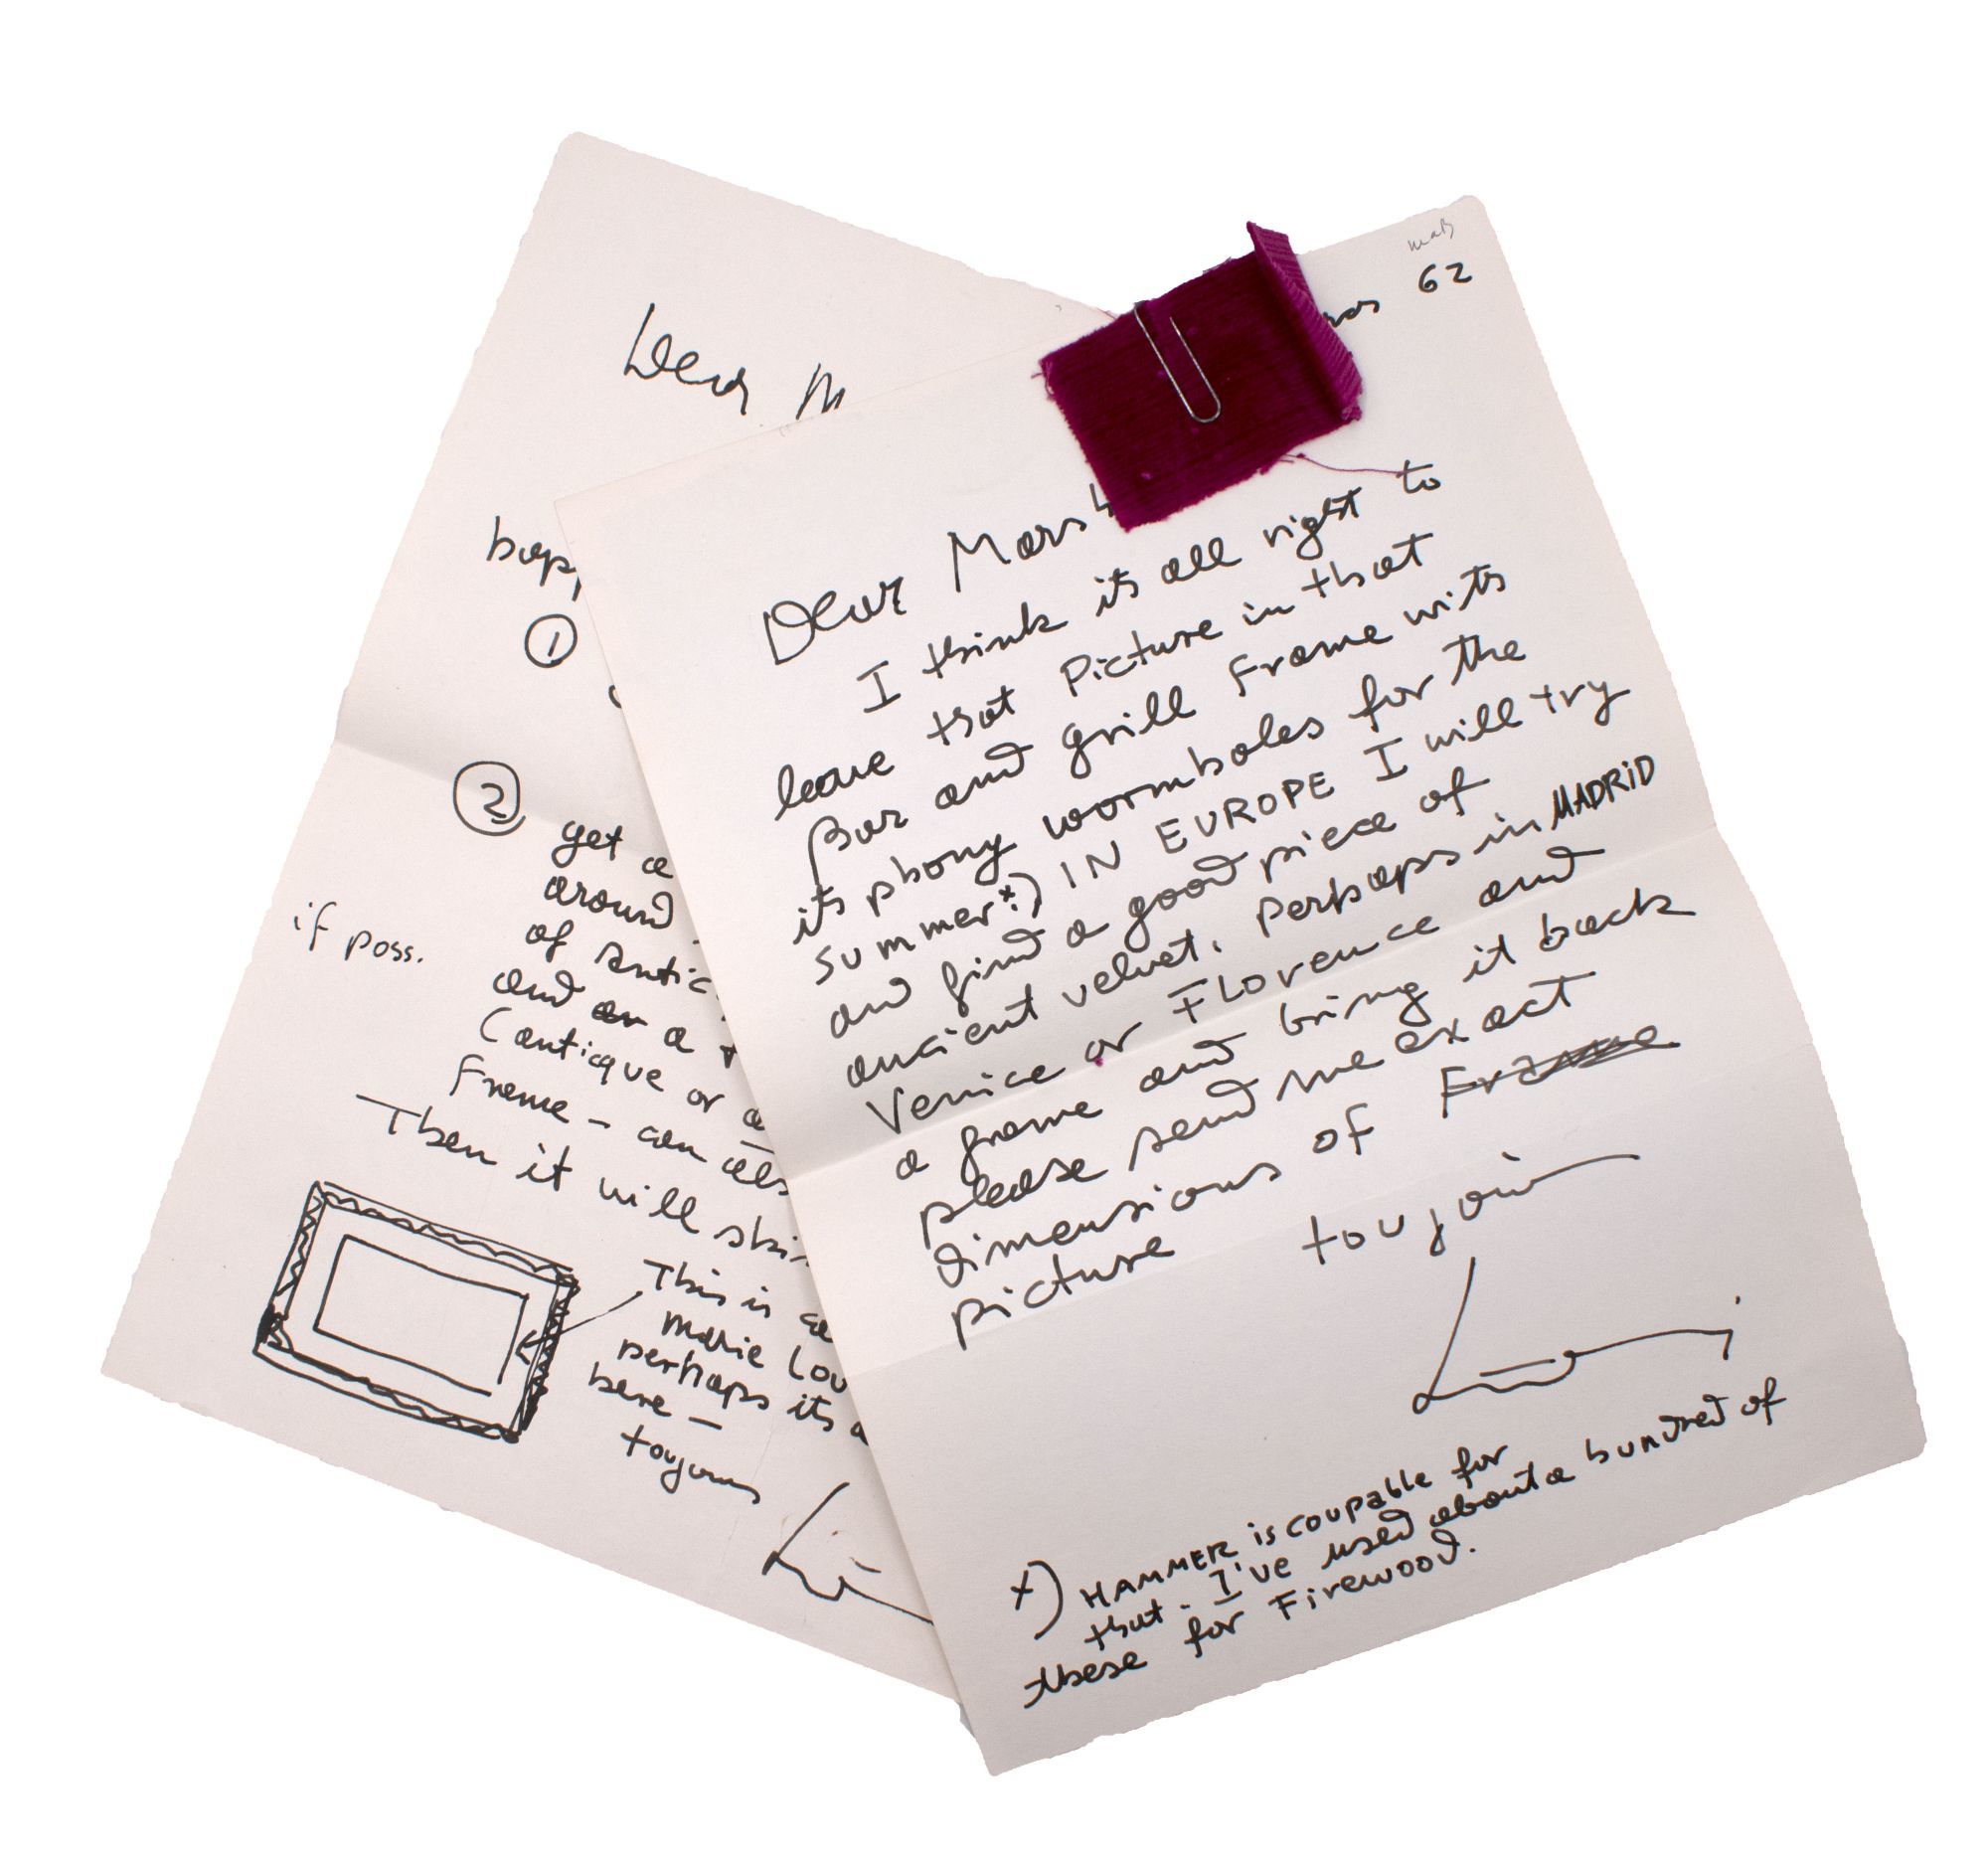 Dear M
①
②
get a
around
of antic
if poss.
and a
(antique or a
Frame - can als
Then it will
This is a
marie Lou
perhaps its a
here -
toujours
62
Dear Mars
I think its all right to
leave that Picture in that
Bar and grill Frame with
its phony wormholes for the
summer*) IN EUROPE I will try
and find a good piece of
ancient velvet. Perhaps in MADRID
Venice or Florence and
a frame and bring it back
please send me exact
dimensions of Frame
picture
toujours
x) HAMMER is coupable for
that. I've used about a hundred of
these for Firewood.